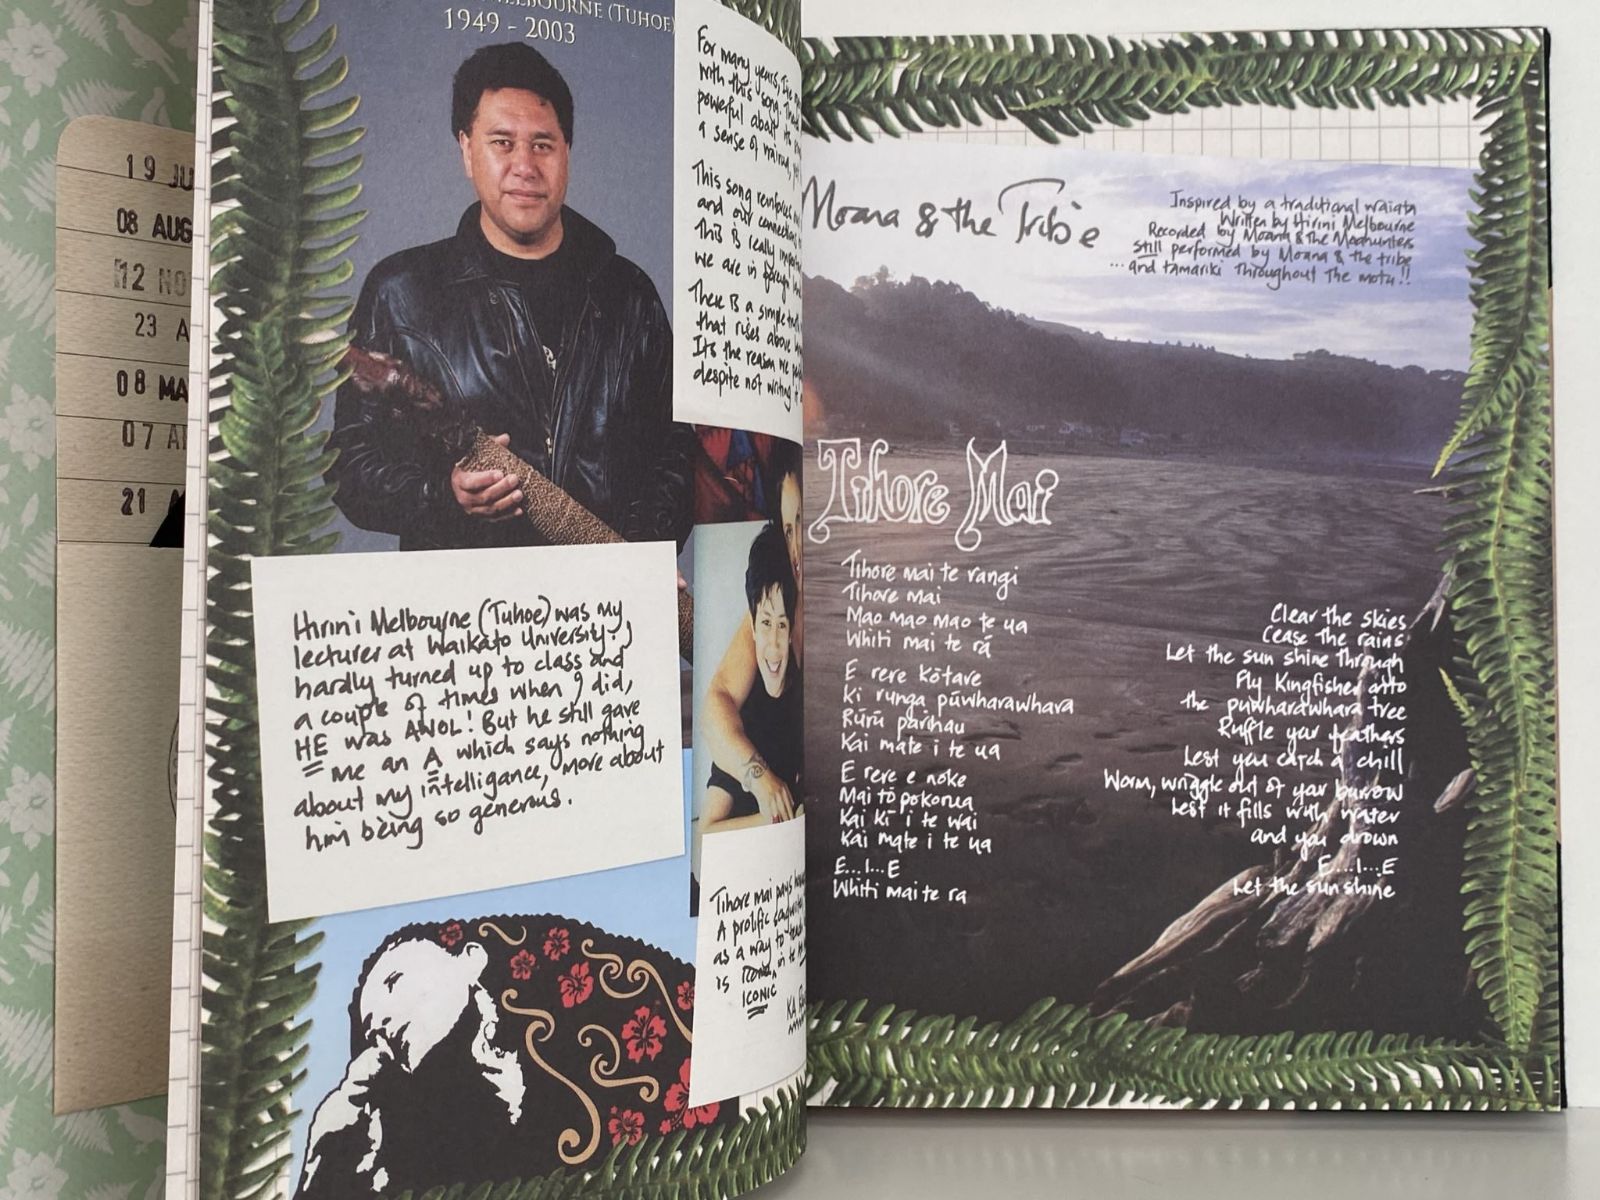 19 JU
08 AUG
12 NO
23 A
08 MA
07 A
21
MELBOURNE (TUHOE)
1949 - 2003
For many years, I've
with this song.
powerful about its
a sense of wairua,
This song reinforces
and our connection
This is really
we are in foreign
There is a simple
that rises above
Its the reason we
despite not writing
Hirini Melbourne (Tuhoe) was my
lecturer at Waikato University. I
hardly turned up to class and
a couple of times when I did,
HE was AWOL! But he still gave
me an A which says nothing
about my intelligance, more about
him being so generous.
Tihore mai pays
A prolific songwriter
as a way to
is iconic, in te
ICONIC
KA
Moana & the Tribe
Inspired by a traditional waiata
Written by Hirini Melbourne
Recorded by Moana & the Moahunters
Still performed by Moana & the tribe
...and tamariki throughout the motu!!
Tihore Mai
Tihore mai te rangi
Tihore mai
Mao mao mao te ua
Whiti mai te rā
E rere kōtare
Ki runga pūwharawhara
Rūrū parihau
Kai mate i te ua
E rere e noke
Mai tō pokorua
Kai kī i te wai
Kai mate i te ua
E...I...E
Whiti mai te ra
Clear the skies
Cease the rains
Let the sun shine through
Fly Kingfisher onto
the puwharawhara tree
Ruffle your feathers
Lest you catch a chill
Worm, wriggle out of your burrow
Lest it fills with water
and you drown
E...I...E
Let the sun shine